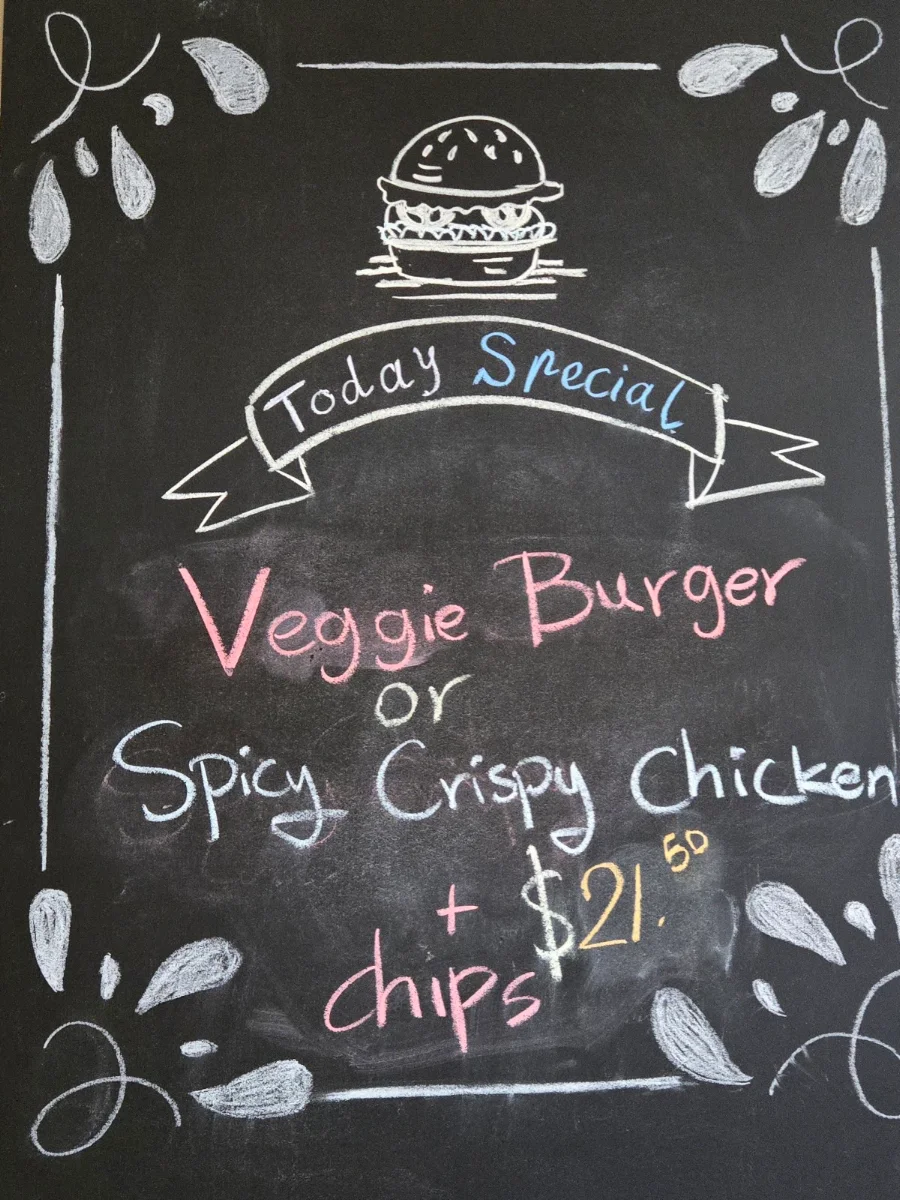 Today Special
Veggie Burger
or
Spicy Crispy Chicken
+ $21.50
chips